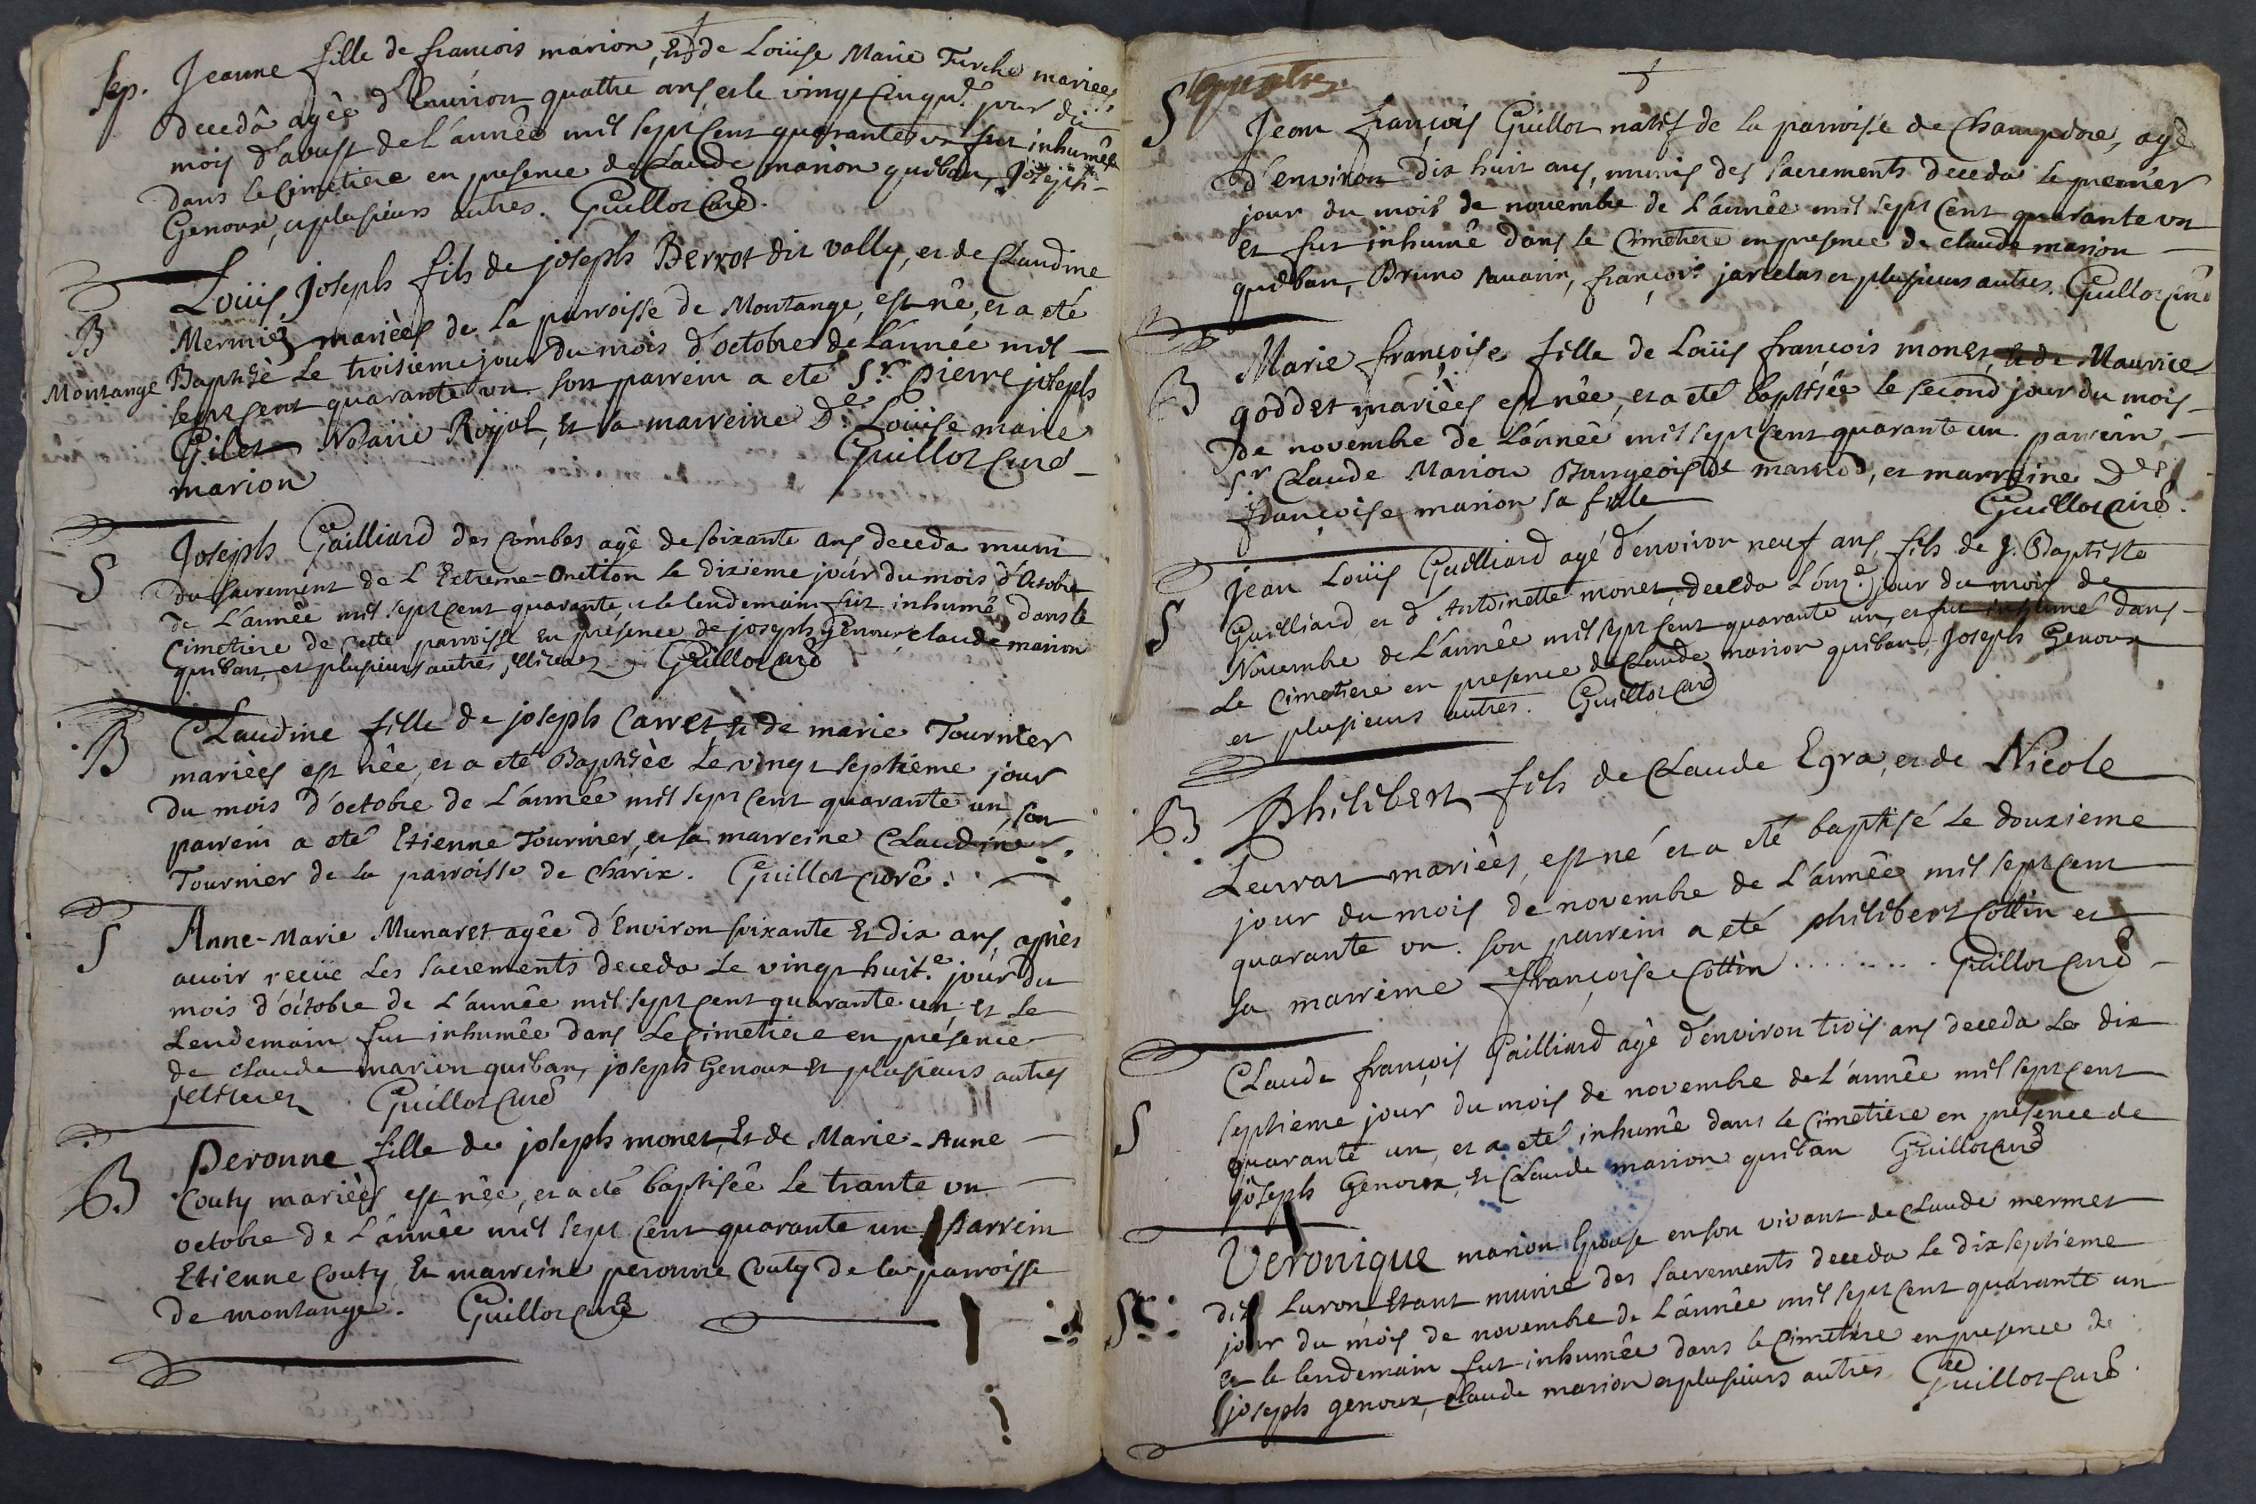 Sep. Jeanne fille de françois marion, et de Loüise Marie Furche mariees,
deceda agée d'Environ quattre ans, et le vingt cinqu.e jour du
mois d'aoust de L'année mil sept cent quarante un fut inhumée
dans le Cimetiere en presence de Claude marion quiban, Joseph
Genoux, et plusieurs autres. Guillot Curé.
Loüis Joseph fils de joseph Berrot dit vally, et de Claudine
B Mermiez mariées de la parroisse de Montange, est né, et a eté
Montange Baptisé Le troisieme jour du mois d'octobre de L'année mil
sept cent quarante un son parrein a eté Sr. Pierre joseph
Gilet Notaire Royal, et sa marreine De. Loüise marie
marion Guillot Curé
S Joseph Gailliard des Combes agé de soixante ans deceda muni
du sacrement de L'Extreme-Onction le dixieme jour du mois d'octobre
de L'année mil sept cent quarante, et le lendemain fut inhumé dans le
Cimetiere de Cette parroisse en présence de joseph Genoux, claude marion
quiban, et plusieurs autres illiterez Guillot Curé
B Claudine fille de joseph Carret, et de marie Tournier
mariées est née, et a eté Baptisée Le vingt septieme jour
du mois d'octobre de L'année mil sept cent quarante un, son
parrein a eté Etienne Tournier, et sa marreine Claudine
Tournier de la parroisse de Charix. Guillot Curé.
S Anne-Marie Munaret agée d'Environ soixante et dix ans, après
avoir reçüe Les sacrements deceda Le vingt huit.e jour du
mois d'octobre de L'année mil sept cent quarante un, et Le
Lendemain fut inhumée dans Le Cimetiere en présence
de claude marion quiban, joseph Genoux et plusieurs autres
illiterez Guillot Curé
B Peronne fille de joseph monet, Et de Marie-Anne
Couty mariées est née, et a eté baptisée Le trante un
octobre de L'année mil sept Cent quarante un Parrein
Etienne Couty, Et marreine peronne Couty de la parroisse
de montange. Guillot Curé
S Jean françois Guillot natif de la parroisse de Champdore, agé
d'environ dix huit ans, munis des sacrements deceda Le premier
jour du mois de novembre de L'année mil sept Cent quarante un
et fut inhumé dans le Cimetiere en presence de claude marion
quiban, Bruno Savarin, françois jarcelas et plusieurs autres. Guillot Curé
Marie françoise fille de Loüis françois monet, et de Maurice
B goddet mariées est née, et a eté baptisée le second jour du mois
de novembre de L'année mil sept Cent quarante un. parrein
Sr Claude Marion Bourgeois de marnod, et marreine Dlle
françoise marion sa fille Guillot Curé.
Jean Loüis Guilliard agé d'environ neuf ans, fils de J. Baptiste
S Guilliard et d'Antoinette monet, deceda L'onz.e jour du mois de
Novembre de L'année mil sept Cent quarante un, et fut inhumé dans
Le Cimetiere en presence de Claude marion quiban, Joseph Genoux
et plusieurs autres. Guillot Curé
B Philibert fils de Claude Egra, et de Nicole
Leurat mariées, est né et a eté baptisé Le douzieme
jour du mois de novembre de L'année mil sept cent
quarante un. son parrein a eté philibert Cottin et
sa marreine françoise Cottin ........ Guillot Curé
Claude françois Gailliard agé d'environ trois ans deceda Le dix
S septieme jour du mois de novembre de L'année mil sept cent
quarante un, et a eté inhumé dans le Cimetiere en présence de
joseph Genoux, et Claude marion quiban Guillot Curé
Veronique marion Epouse en son vivant de claude mermet
S dit Luron Etant munie des sacrements deceda le dix septieme
jour du mois de novembre de L'année mil sept cent quarante un
et le lendemain fut inhumée dans le Cimetiere en presence de
joseph genoux, claude marion et plusieurs autres. Guillot Curé.